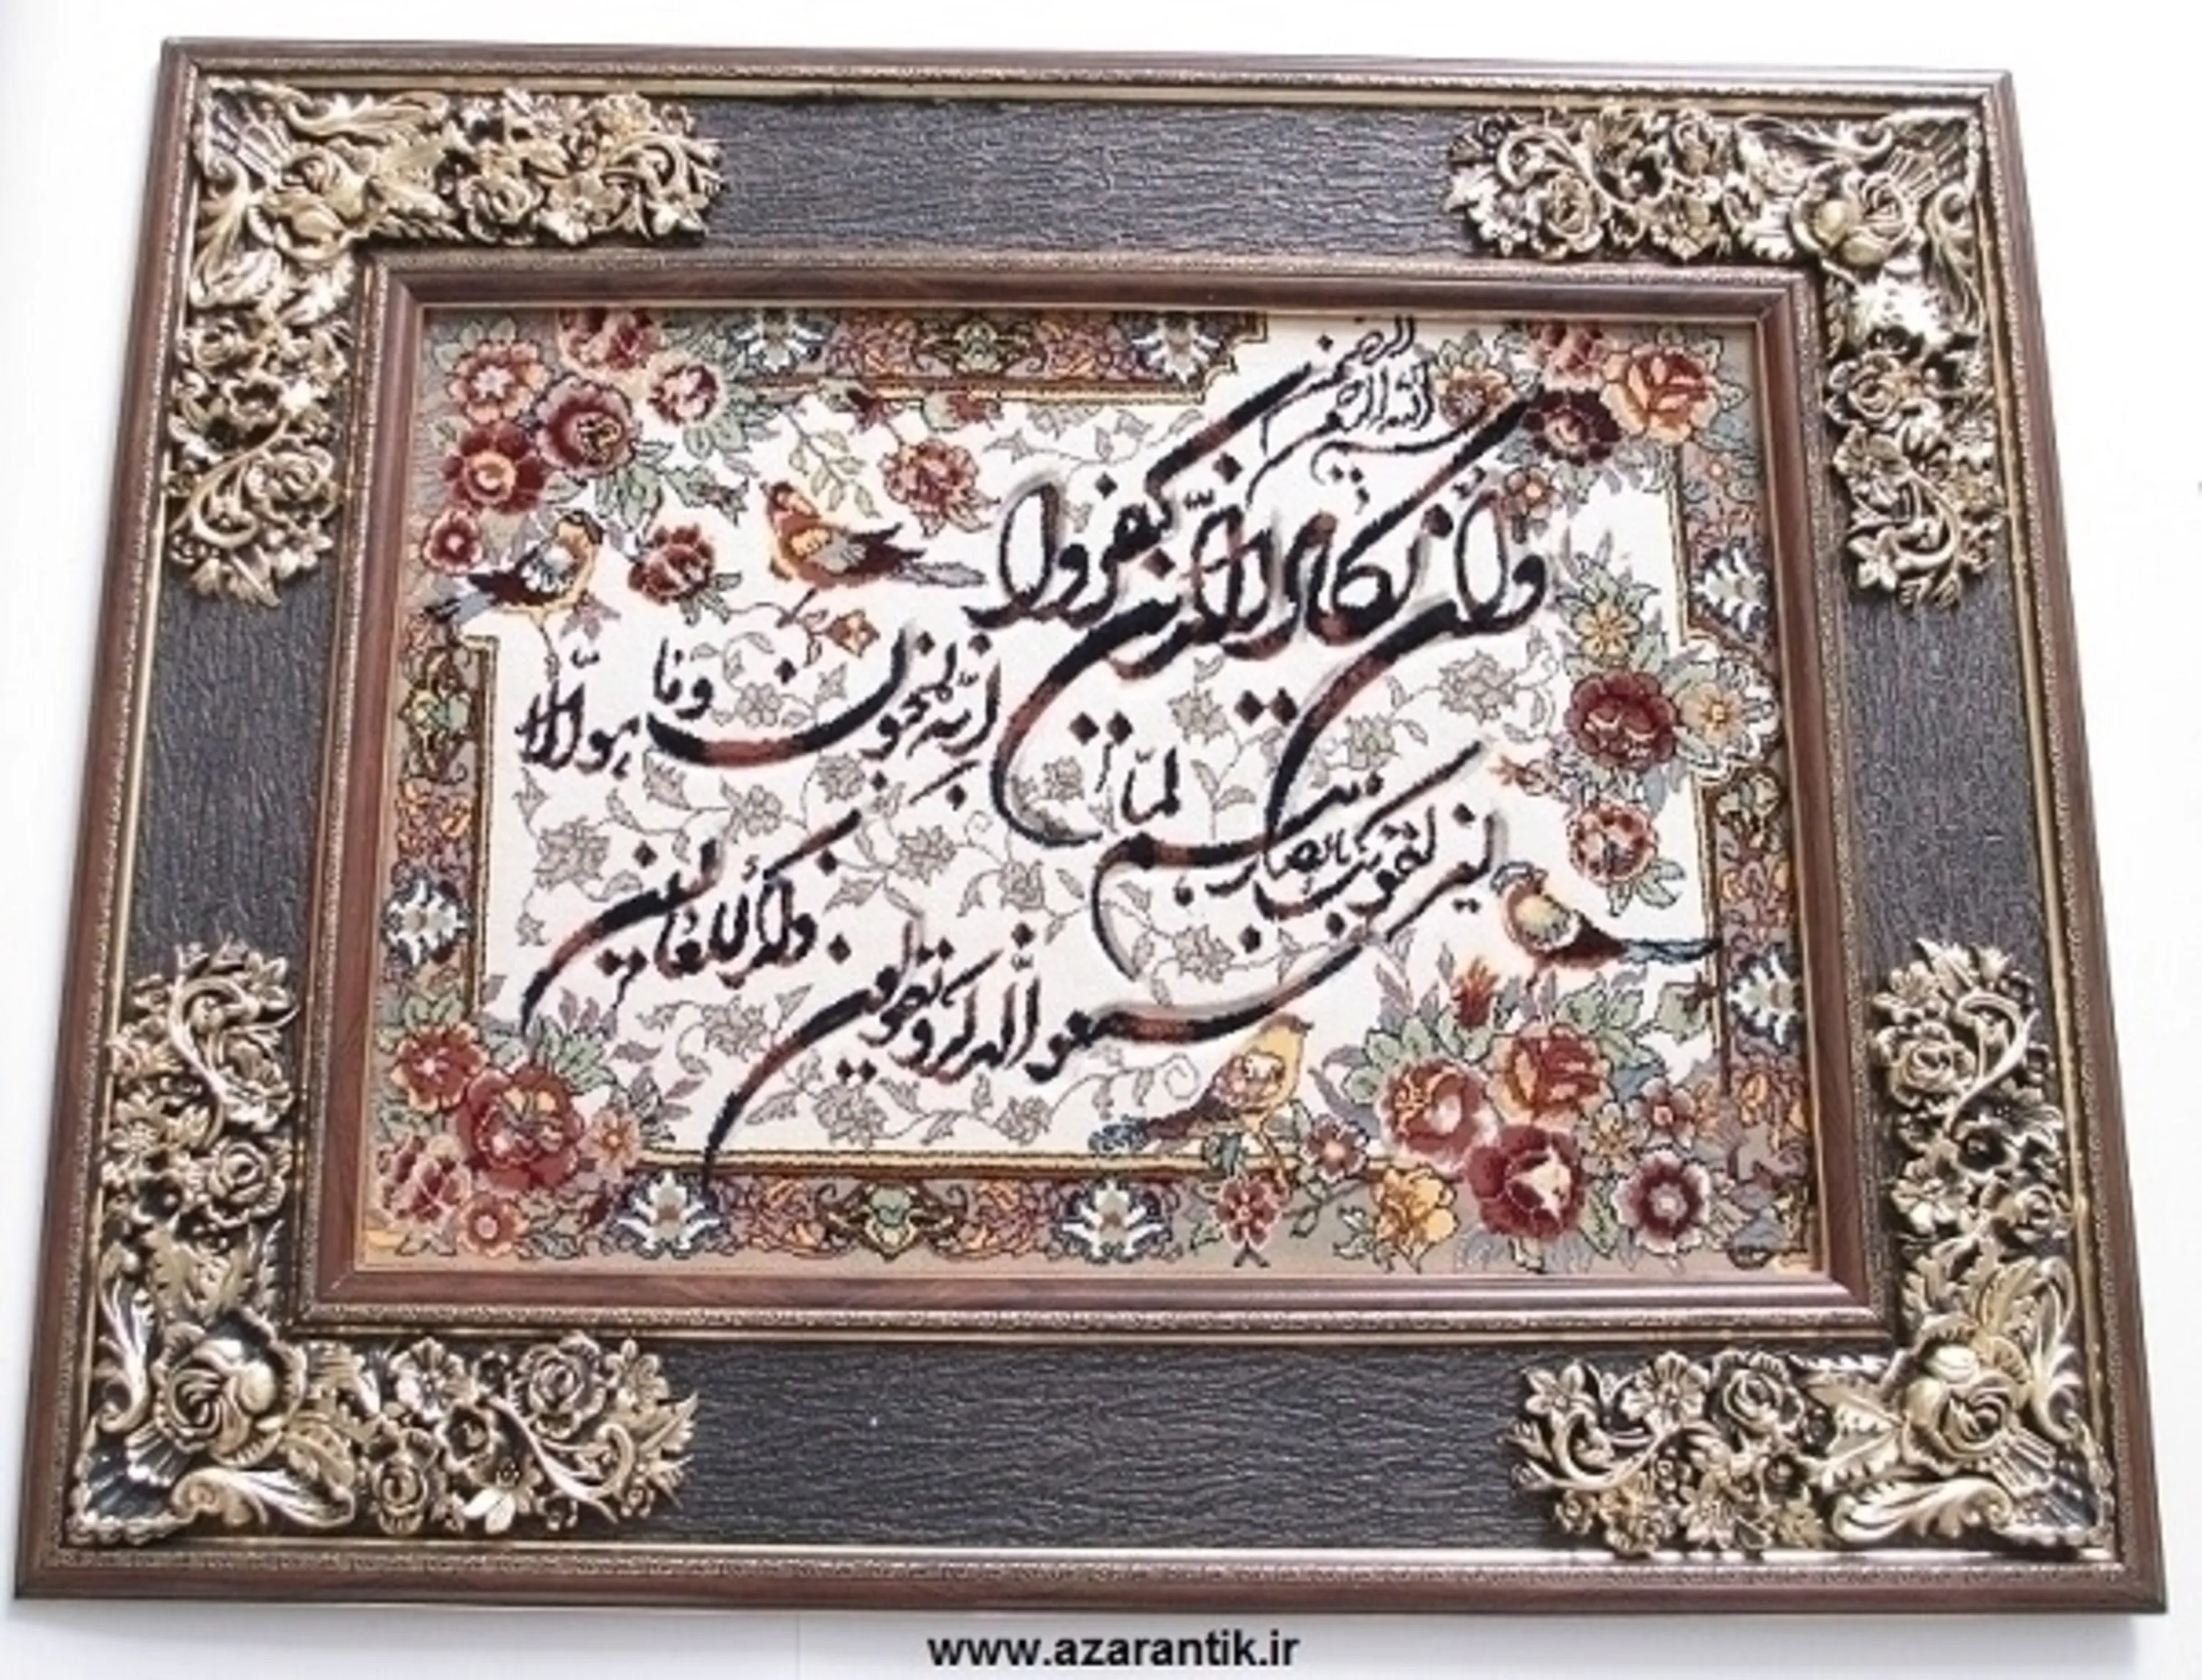 بسم الله الرحمن الرحیم
وان یکاد الذین کفروا
لیزلقونک بابصارهم لما
سمعوا الذکر و یقولون
انه لمجنون وما هو الا
ذکر للعالمین
www.azarantik.ir